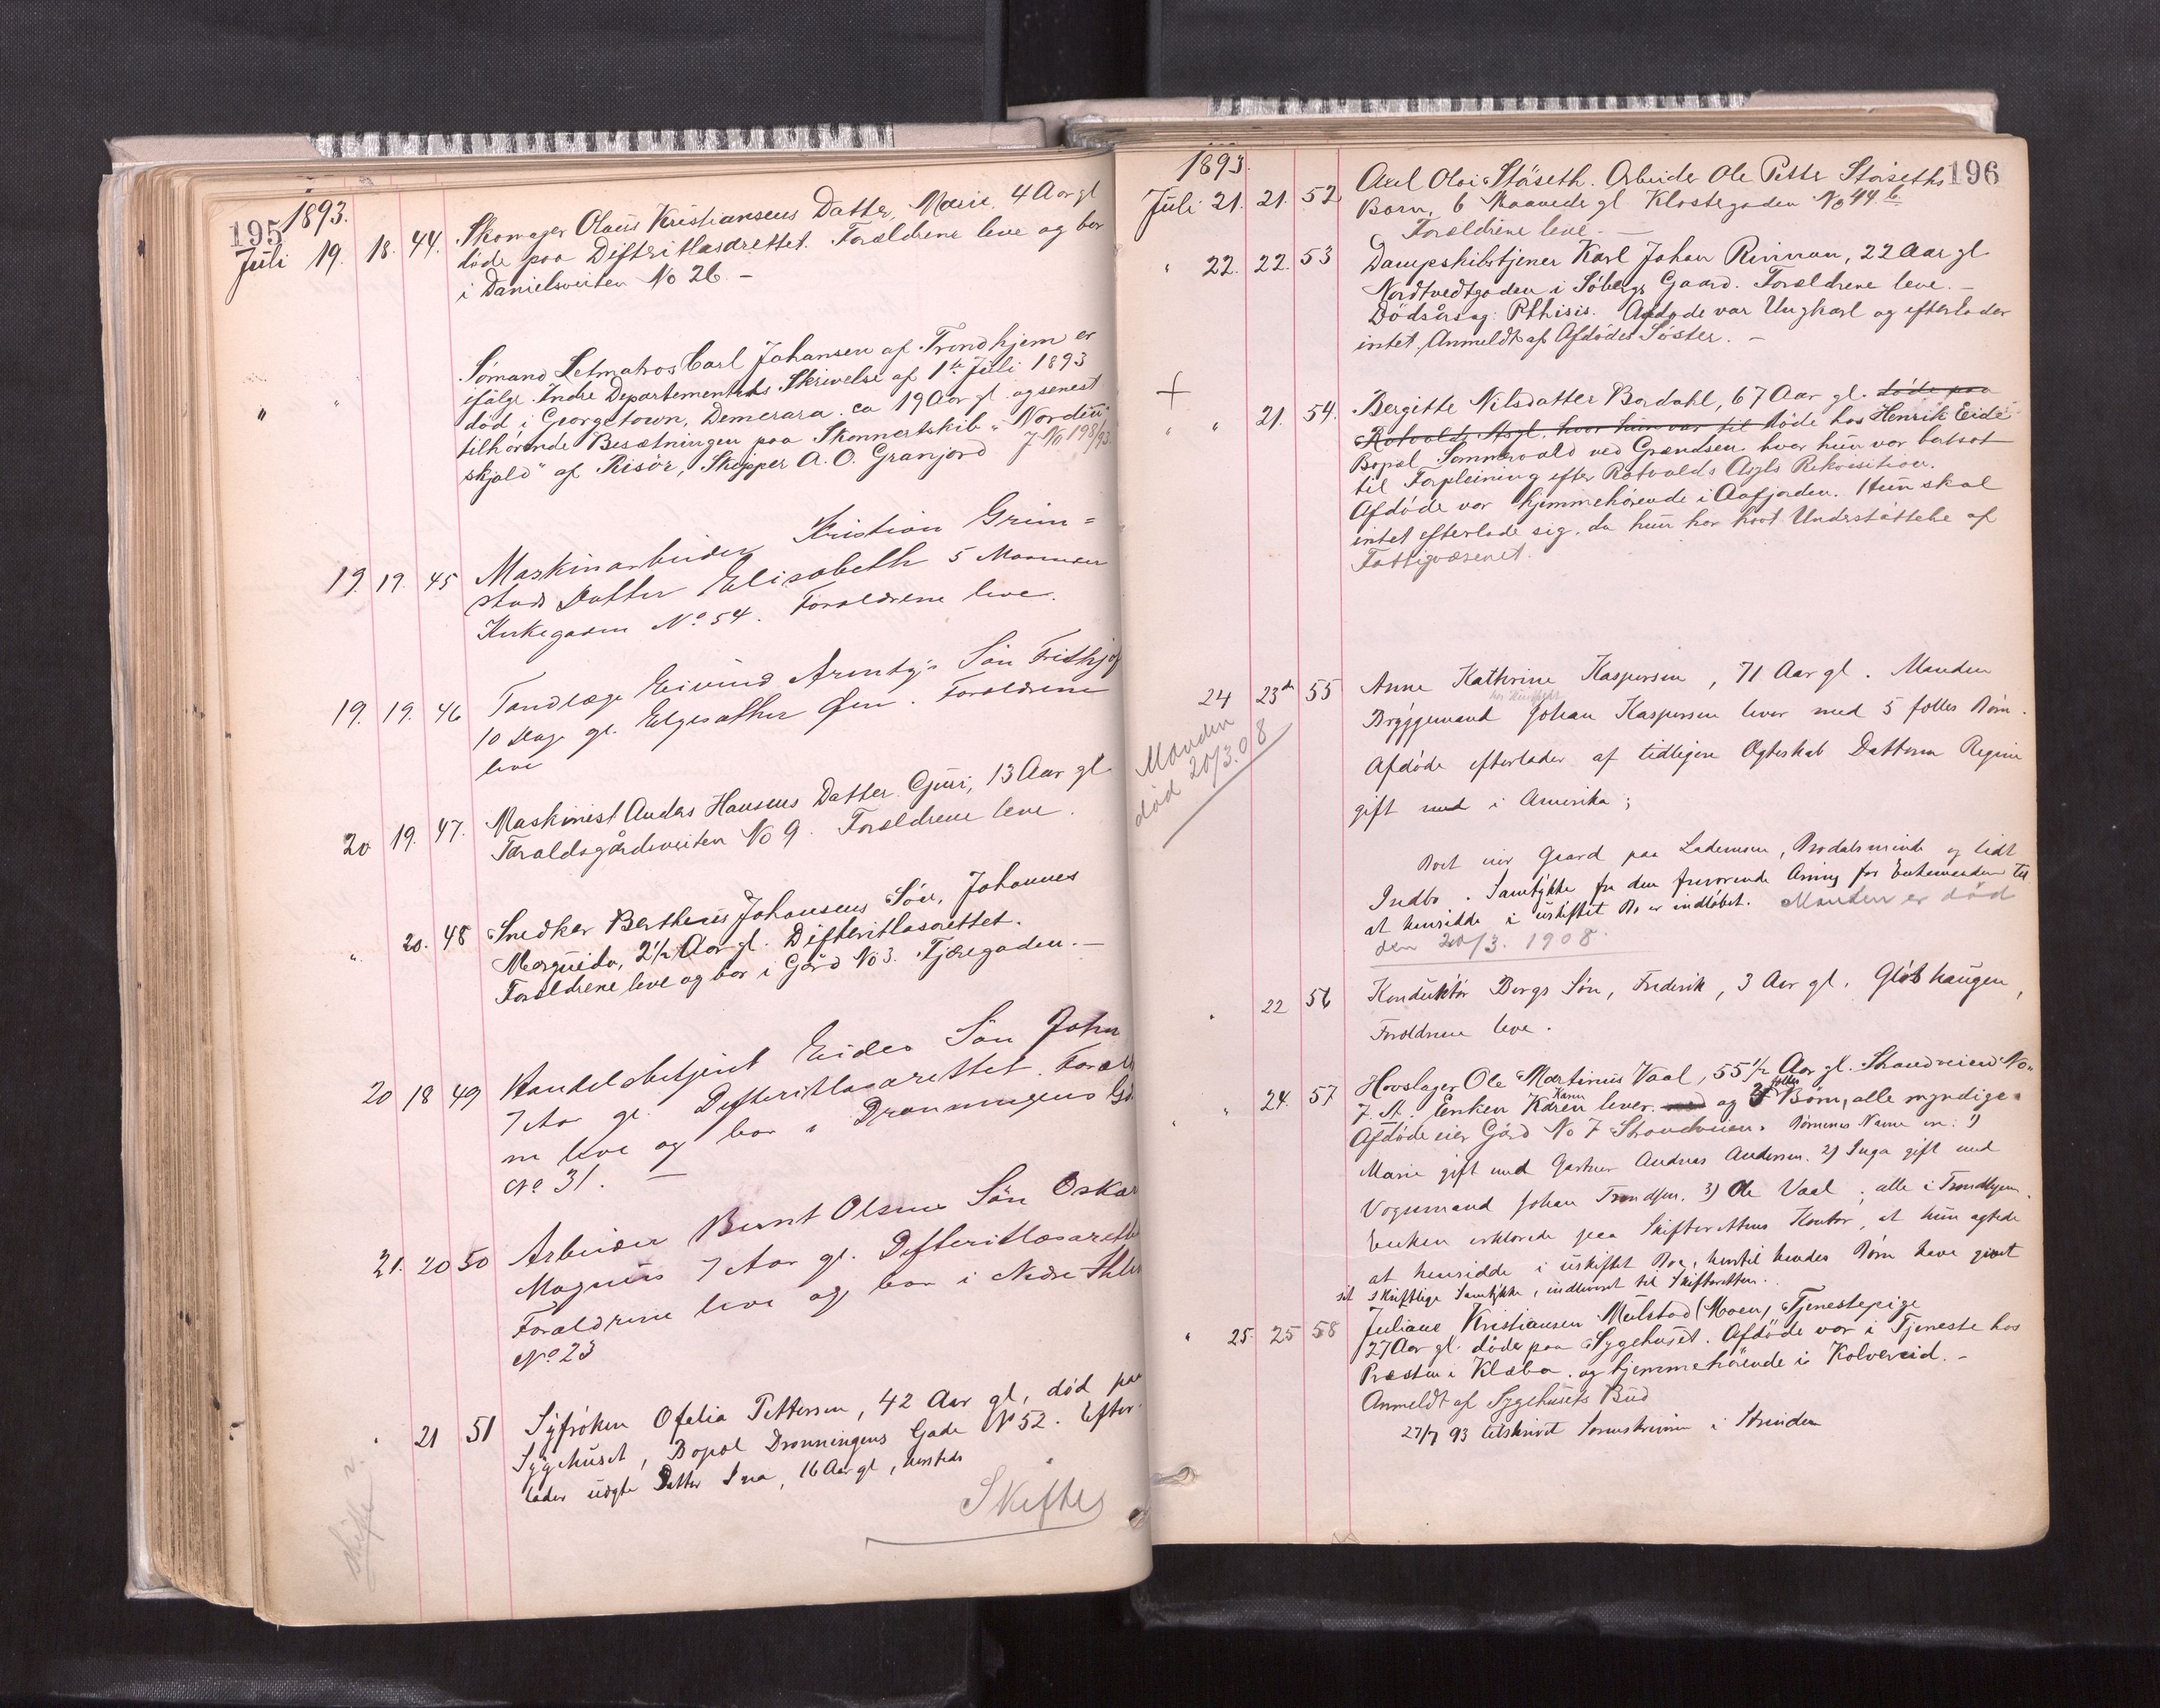 195 1893.
Juli 19. 18. 44. Skomager Olaus Kristiansens Datter, Marie, 4 Aar gl
døde paa Difteritlasarettet. Forældrene leve og bor
i Danielsveiten No 26. –
" " Sømand Letmatros Carl Johansen af Trondhjem er
ifølge Indre Departementets Skrivelse af 1ste Juli 1893
død i Georgetown, Demerara. ca 19 Aar gl. og senest
tilhørende Besætningen paa Skonnertskib "Norden
skjold" af Risør, Skipper A. O. Granjord J No 198/93
19. 19. 45 Maskinarbeider Kristian Grim=
stads Datter Elisabeth 5 Maaneder
Kirkegaden No 54. Forældrene leve.
19. 19. 46 Tandlæge Eivind Arentz's Søn Frithjof
10 Dage gl. Elgesæther Øen. Forældrene
leve
20 19. 47. Maskinist Anders Hansens Datter Guri, 13 Aar gl
Taraldsgårdsveiten No 9. Forældrene leve.
" 20. 48 Snedker Bertheus Johansens Søn, Johannes
2 1/2 Aar gl. Difteritlasarettet.
Forældrene leve og bor i Gård No 3. Tjæregaden. –
20 18 49 Handelsbetjent Eides Søn John
7 Aar gl. Difteritlasarettet. Foræld
ne leve og bor i Dronningens Ga
No 31. –
21. 20 50 Arbeider Bernt Olsens Søn Oskar
Magnus 7 Aar gl. Difteritlasarette
Forældrene leve og bor i Nedre
No 23
" 21 51 Syfrøken Ofelia Pettersen, 42 Aar gl, død paa
Sygehuset, Bopæl Dronningens Gade No 52. Efter-
lader uægte Datter 16 Aar gl, hersteds
Skiftes
Skifte?
1893. 196
Juli 21. 21. 52 Axel Olai Støseth. Arbeider Ole Petter Støseths
Barn, 6 Maaneder gl. Klostergaden No 44 b.
Forældrene leve. –
" 22. 22. 53 Dampskibstjener Karl Johan Rinnan, 22 Aar gl
Nordtvedtgaden i Søbergs Gaard. Forældrene leve. –
Dödsårsag: Pthisis. Afdøde var Ungkarl og efterlader
intet, Anmeldt af Afdødes Søster. –
+
" " 21. 54. Bergitte Nilsdatter Bardahl, 67 Aar gl. døde paa
Rotvolds Asyl, hvor hun var til døde hos Henrik Eide
Bopæl Sommervold ved Grændsen hvor hun var betsat
til Forpleining efter Rotvolds Asyls Rekvisition.
Afdøde var hjemmehørende i Aafjorden. Hun skal
intet efterlade sig, da hun har havt Understøttelse af
Fattigvæsenet.
24 23de 55 Anne Kathrine Kaspersen, 71 Aar gl. Manden
Bryggemand Johan Kaspersen lever med 5 fælles Børn.
Afdøde efterlader af tidligere Ægteskab Datteren Regine
gift med i Amerika;
Manden
død 20/3.08
Boet eier Gaard paa Lademoen, Brodalsminde og lidt
Indbo. Samtykke fra den fraværende Arving for Enkemanden til
at hensidde i uskiftet Bo er indløbet. Manden er død
den 20/3. 1908.
" 22 56 Konduktør Bergs Søn, Frederik, 3 Aar gl. Gløshaugen,
Forældrene leve.
" 24. 57 Hovslager Ole Martinus Vaal, 55 1/2 Aar gl. Strandveien No
7. A. Enken Karen lever med og 3 fælles Børn, alle myndige.
Afdøde eier Gård No 7 Strandveien. Børnenes Navne er: 1)
Marie gift med Gartner Andreas Andersen. 2) Inga gift med
Vognmand Johan Trondsen. 3) Ole Vaal; alle i Trondhjem.
Enken erklærede paa Skifterettens Kontor, at hun agtede
at hensidde i uskiftet Bo, hvortil hendes Børn have givet
sit skriftlige Samtykke, indleveret til Skifteretten.
" 25. 25 58 Juliane Kristiansen Mulstad (Moen) Tjenestepige
27 Aar gl. døde paa Sygehuset. Afdøde var i Tjeneste hos
Præsten i Klæbo. og hjemmehørende i Kolvereid. –
Anmeldt af Sygehusets Bud
27/7 93 tilskrevet Sorenskriveren i Strinden